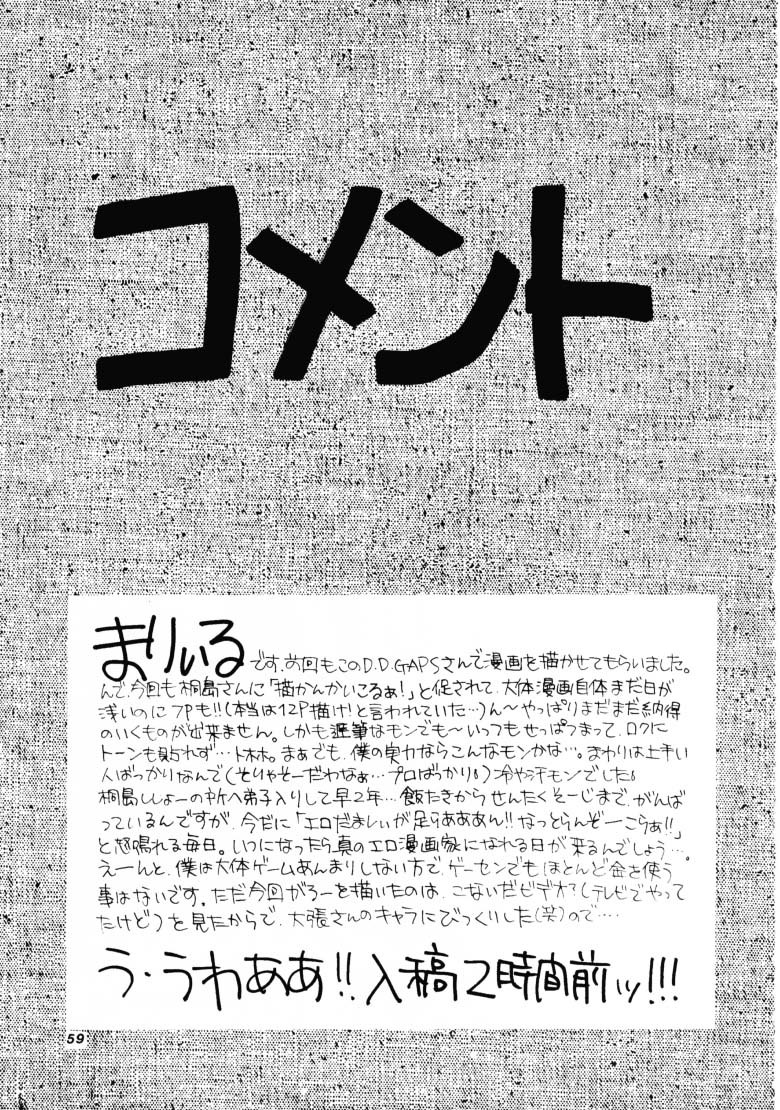 コメント
まりぃるです。前回もこのD.D.GAPSさんで漫画を描かせてもらいました。
んで、今回も桐島さんに「描かんかいこるぁ！」と促されて、大体漫画自体まだ日が
浅いのに7Pも!!(本当は12P描け！と言われていた…)ん〜やっぱりまだまだ納得
のいくものが出来ません。しかも遅筆なモンでも〜いつもせっぱつまって、ロクに
トーンも貼れず…トホホ。まぁでも、僕の実力ならこんなモンかな…。まわりは上手い
人ばっかりなんで(そりゃそーだわなぁ…プロばっかり)冷や汗モンでした
桐島ししょーの所へ弟子入りして早2年…飯たきからせんたくそーじまで、がんば
っているんですが、今だに「エロだましいが足りあああん!!なっとらんぞーこらぁ!!」
と怒鳴れる毎日。いつになったら真のエロ漫画家になれる日が来るんでしょう…。
えーんと、僕は大体ゲームあんまりしない方で、ゲーセンでもほとんど金を使う
事はないです。ただ今回がろーを描いたのは、こないだビデオ?(テレビでやって
たけど)を見たからで、大張さんのキャラにびっくりした(笑)ので‥‥
う・うわああ!!入稿2時間前ッ!!!
59